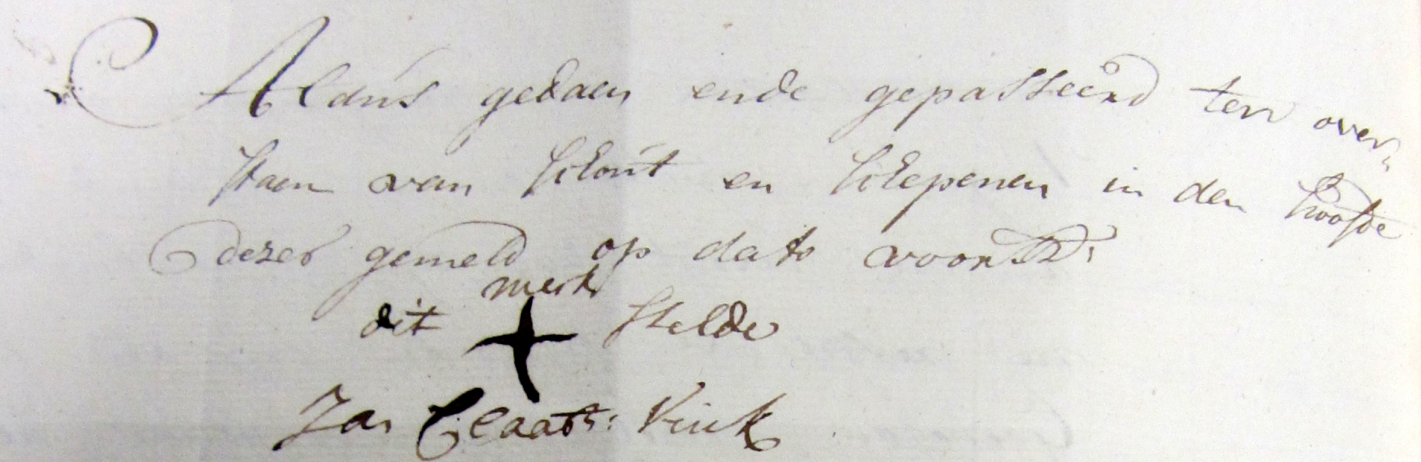 Aldus gedaen ende gepasseerd ten over„
staen van schout en schepenen in den hoofde
dezes gemeld op dato voorsz:
merk
dit + stelde
Jan Claasz: Vink